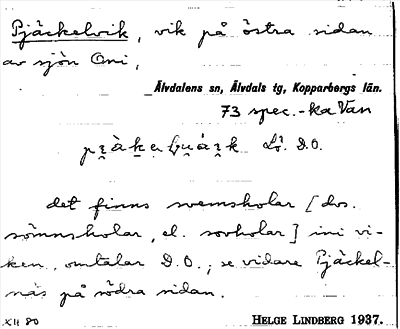 Pjäckelvik, vik på östra sidan
av sjön Oni,
Älvdalens sn, Älvdals tg, Kopparbergs län.
73 spec.-ka Van
D.O.
det finns svemsholar [dvs.
sömnsholar, el. sovholar] ini vi-
ken, omtalar D.O.; se vidare Pjäckel-
näs på södra sidan.
XII 80
HELGE LINDBERG 1937.